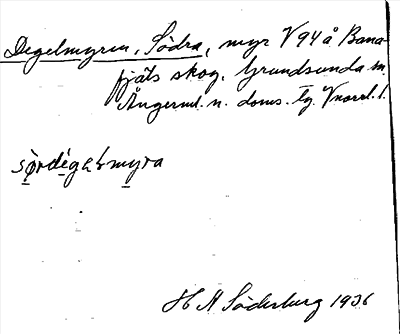 Degelmyren, Södra, myr V 94 å Bana-
fjäls skog. Grundsunda sn.
Ångerml. n. doms. tg. Vnorrl. l.
sø̀rdégəlmyra
H A Söderburg 1936